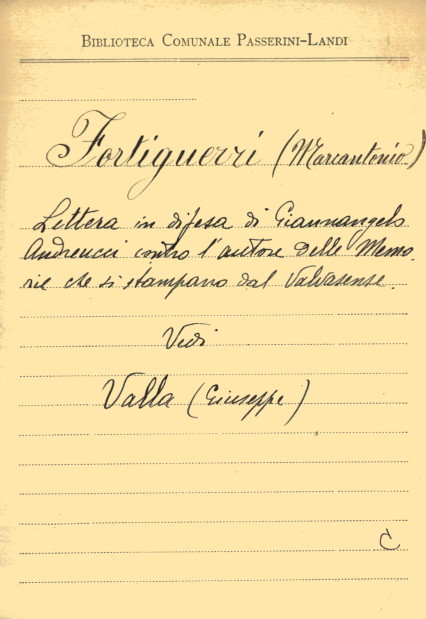 BIBLIOTECA COMUNALE PASSERINI-LANDI
Fortiguerri (Marcantonio)
Lettera in difesa di Giannangelo
Andreucci contro l'autore delle Memo-
rie che si stampano dal Valvasense.
Vedi
Valla (Giuseppe)
C